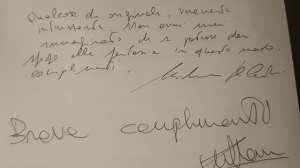 Qualcosa di originale, veramente
interessante. Non avrei mai
immaginato che si potesse dar
sfogo alla fantasia in questo modo.
complimenti.
Brava complimenti